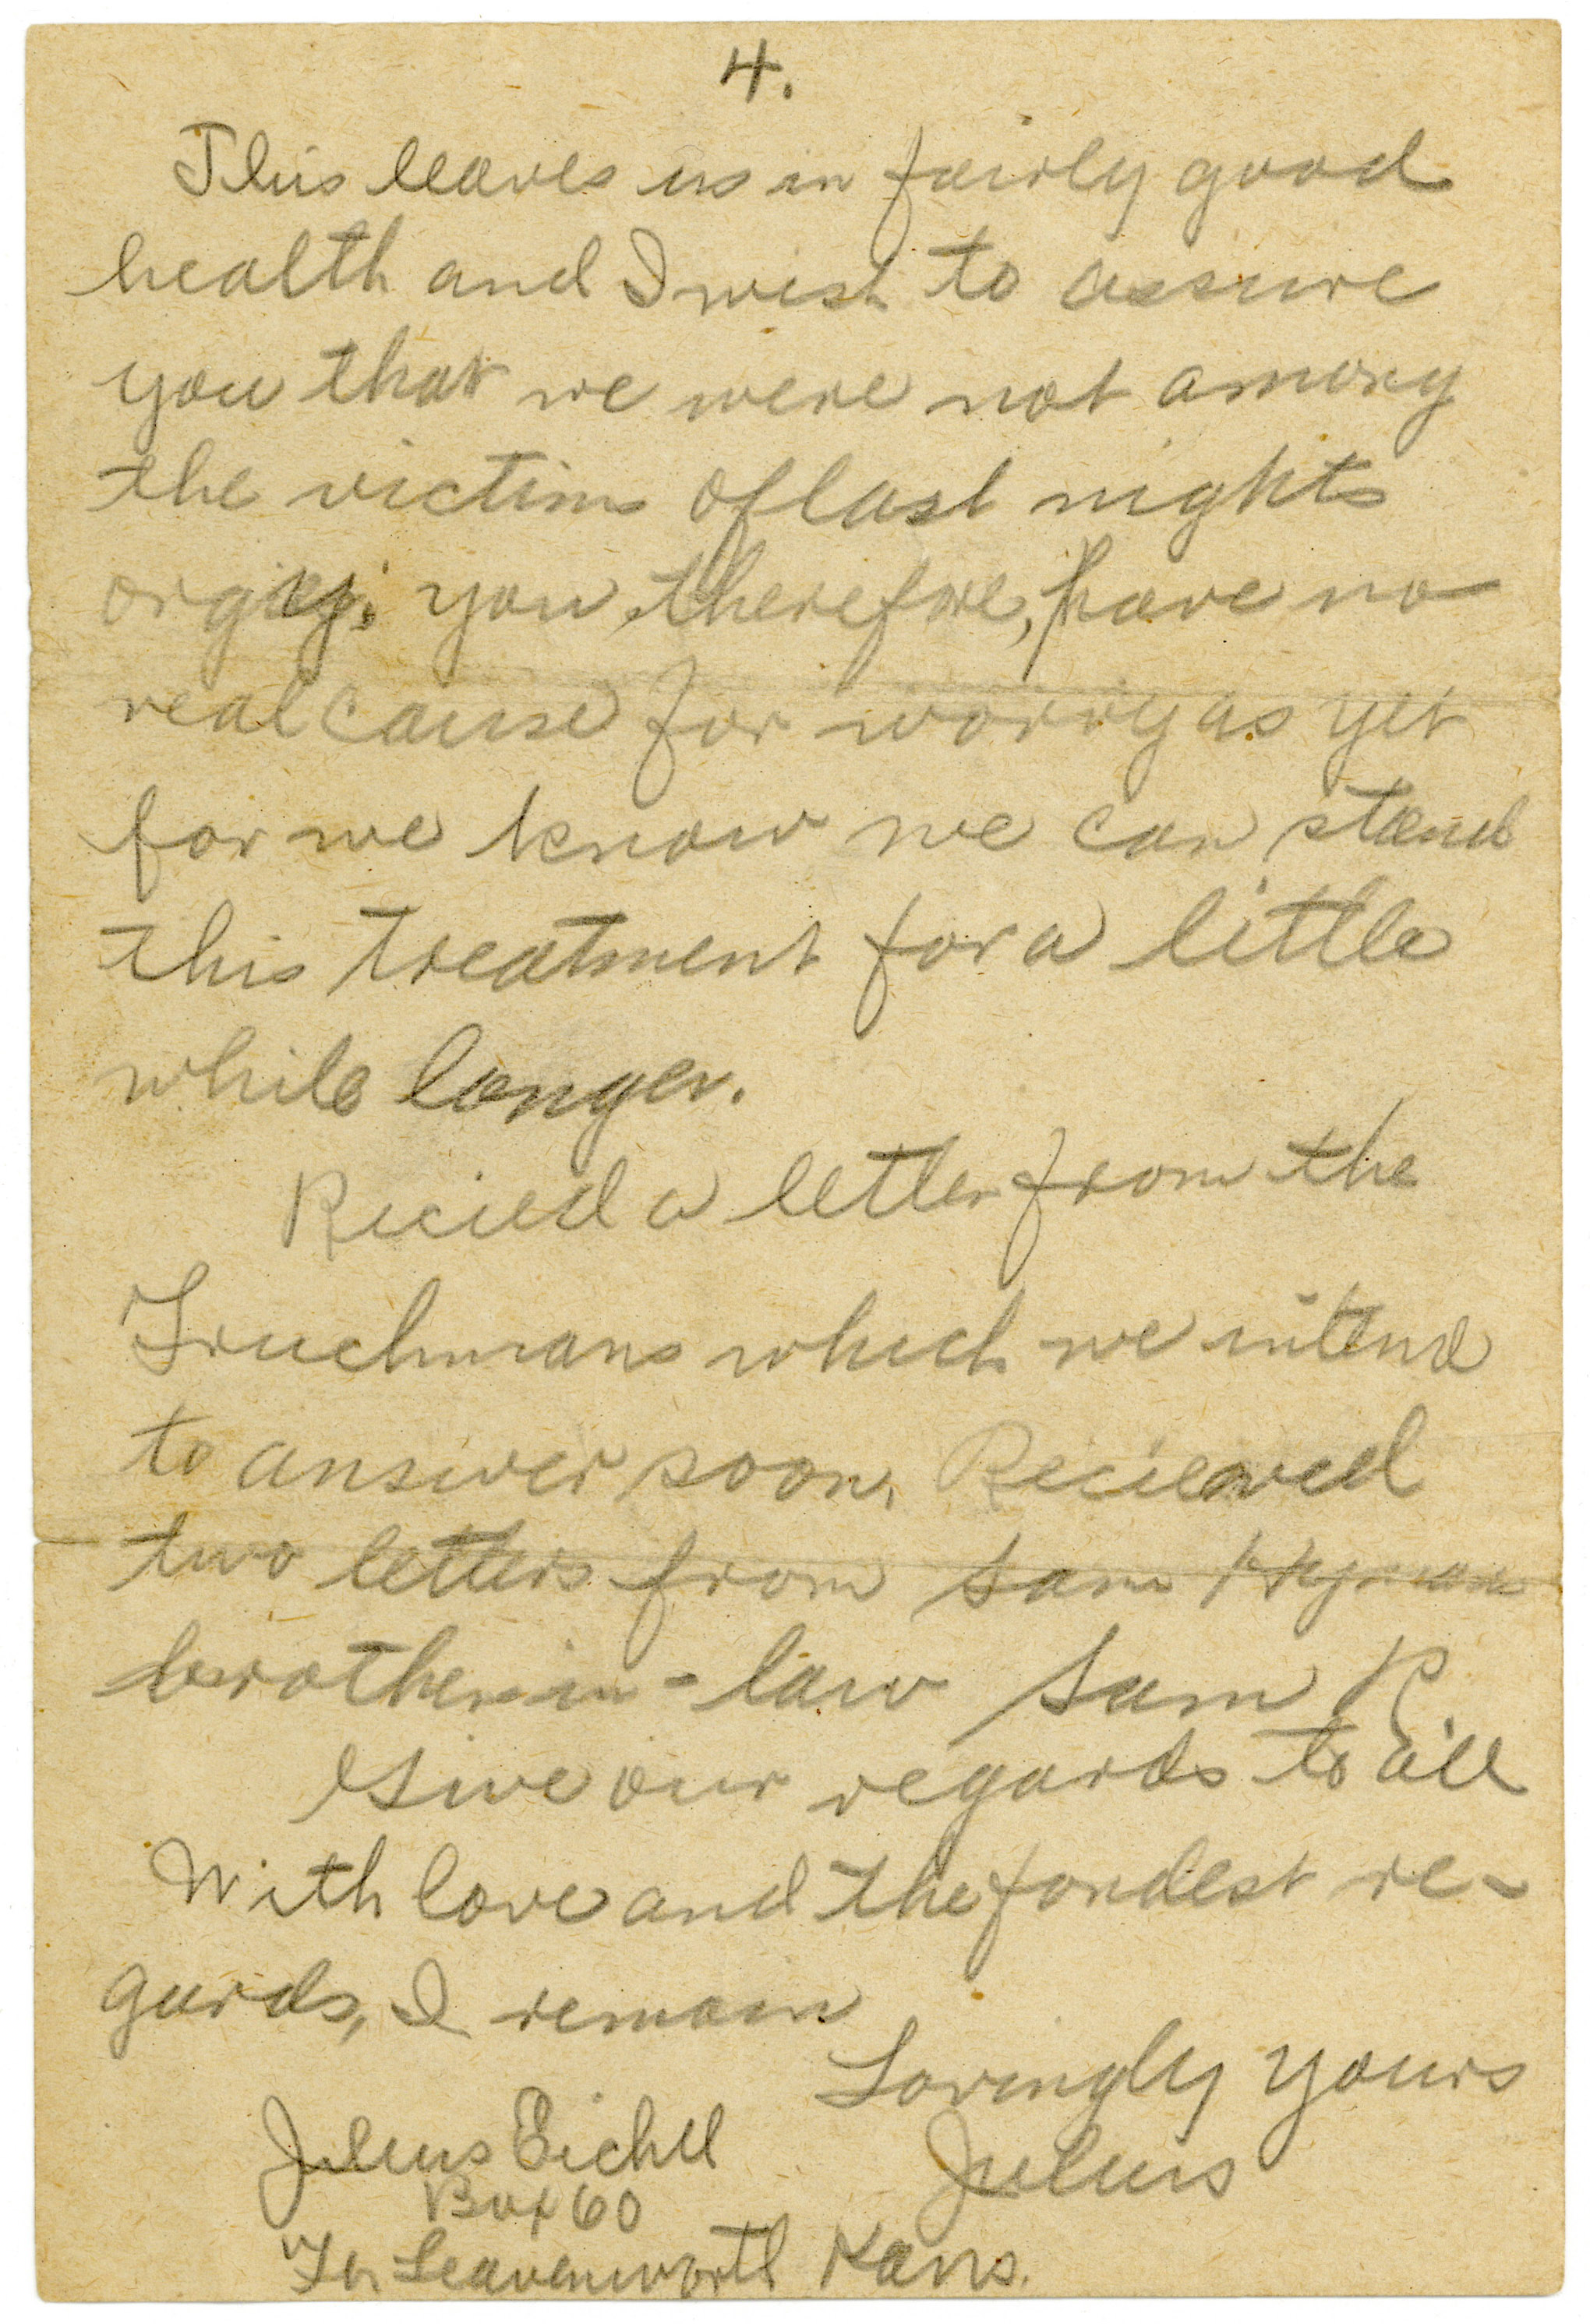 4.
This leaves us in fairly good
health and I wish to assure
you that we were not among
the victims of last nights
orgy; you, therefore, have no
real cause for worry as yet
for we know we can stand
this treatment for a little
while longer.
Recieed a letter from the
which we intend
to answer soon. Recieved
two letters from Sam Hyman
brother-in-law Sam R.
Give our regards to all
With love and the fondest re-
gards, I remain
Lovingly yours
Julius
Julius Eichel
Box 60
Ft. Leavenworth Kans.